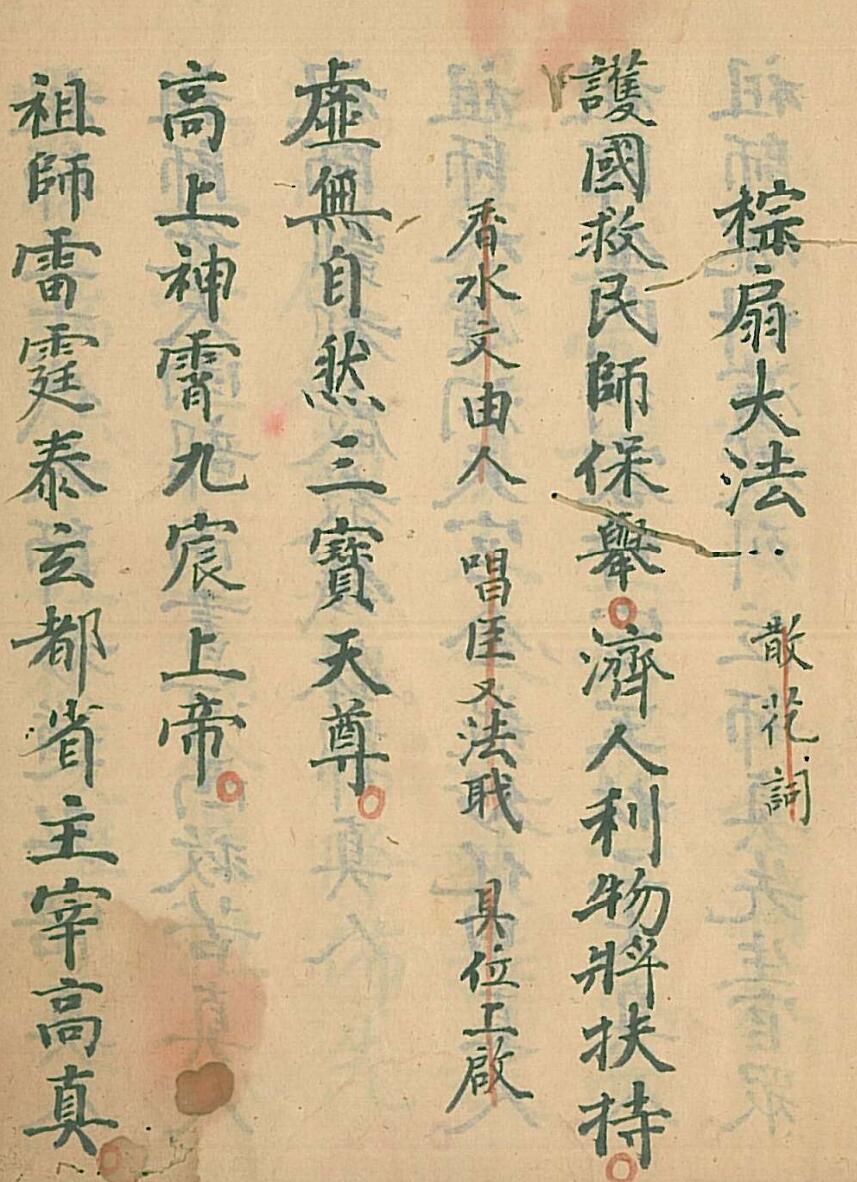 棕扇大法 散花詞
護國救民師保舉濟人利物將扶持
香水文由人 唱臣又法職 具位上啟
虛無自然三寶天尊
高上神霄九宸上帝
祖師雷霆泰玄都省主宰高真